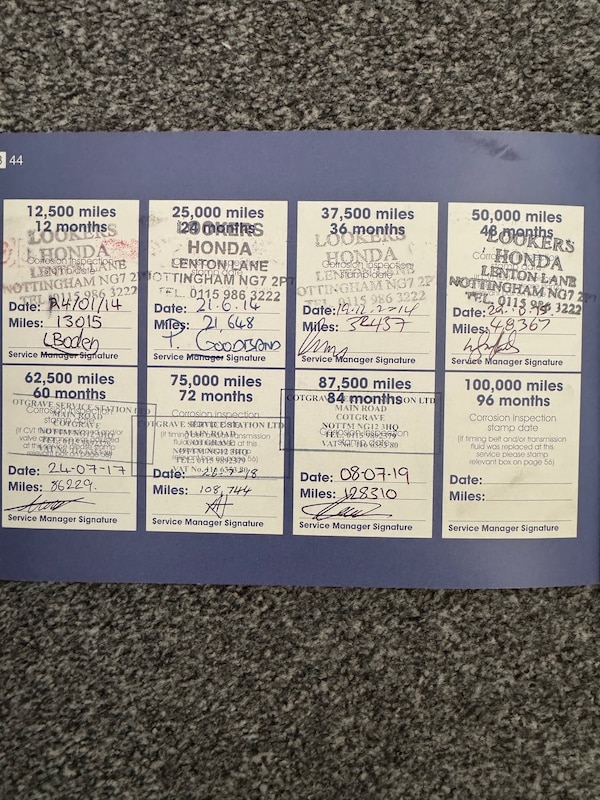 44
12,500 miles
12 months
LOOKERS
HONDA
Corrosion inspection
LENTON LANE
NOTTINGHAM NG7 2P
TEL. 0115 986 3222
Date: 14/01/14
Miles: 13015
LBoden
Service Manager Signature
25,000 miles
24 months
LOOKERS
HONDA
LENTON LANE
stamp date
NOTTINGHAM NG7 2P
TEL. 0115 986 3222
Date: 21.6.14
Miles: 21,648
Service Manager Signature
37,500 miles
36 months
LOOKERS
HONDA
Corrosion inspection
LENTON LANE
stamp date
NOTTINGHAM NG7 2P
TEL. 0115 986 3222
Date:
Miles:
Service Manager Signature
50,000 miles
48 months
LOOKERS
HONDA
LENTON LANE
NOTTINGHAM NG7 2P
TEL. 0115 986 3222
Date:
Miles: 48,367
Service Manager Signature
62,500 miles
60 months
COTGRAVE SERVICE STATION LTD
MAIN ROAD
COTGRAVE
NOTTM NG12 3HQ
Date: 24-07-17
Miles: 86229.
Service Manager Signature
75,000 miles
72 months
Corrosion inspection
COTGRAVE SERVICE STATION LTD
MAIN ROAD
COTGRAVE
NOTTM NG12 3HQ
TEL: 0115 9892379
Date:
Miles: 108,744
Service Manager Signature
87,500 miles
84 months
COTGRAVE SERVICE STATION LTD
MAIN ROAD
COTGRAVE
NOTTM NG12 3HQ
TEL: 0115 9892379
Date: 08-07-19
Miles: 128310
Service Manager Signature
100,000 miles
96 months
Corrosion inspection
stamp date
(if timing belt and/or transmission
fluid was replaced at this
service please stamp
relevant box on page 56)
Date:
Miles:
Service Manager Signature